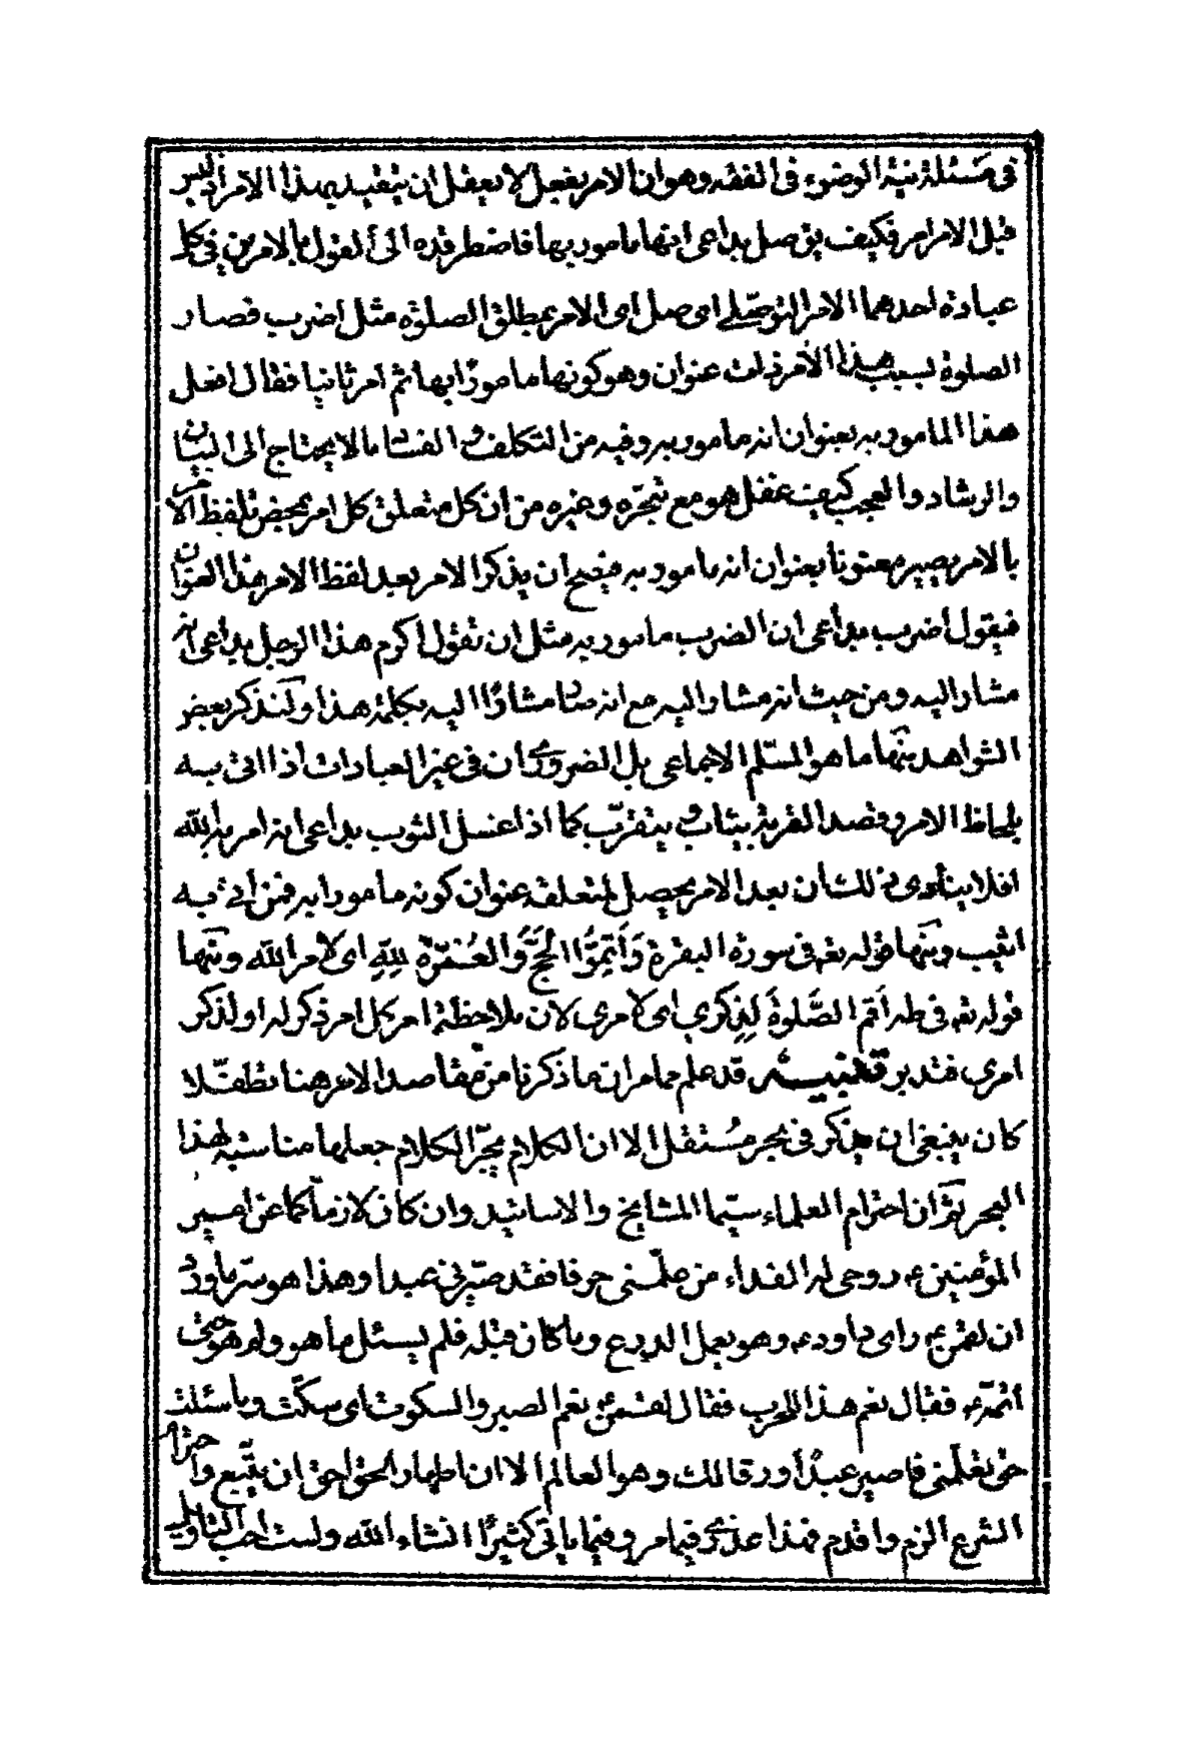 فى مسئلة نية الوضوء فى الفقه وهو ان الامر بفعل لا يعقل ان يتقيد بهذا الامر اذ ليس
قبل الامر امر فكيف يق صل بداعى انها مامور بها فاضطر قده الى القول بالامرين فى كل
عبادة احدهما الامر التوصّلى اى صل اى الامر بمطلق الصلوة مثل اضرب فصار
الصلوة لسبب هذا الامر ذات عنوان وهو كونها مامورًا بها ثم امر ثانيا فقال افعل
هذا المامور به بعنوان انه مامور به وفيه من التكلف و الفساد ما لا يحتاج الى البيان
والرشاد والعجب كيف غفل هو مع تبحّره وغيره من ان كل متعلق كل امر بمحض تلفظ الامر
بالامر يصير معنونا بعنوان انه مامور به فيصح ان يذكر الامر بعد لفظ الامر هذا العنوان
فيقول اضرب بداعى ان الضرب مامور به مثل ان تقول اكرم هذا الرجل بداعى انه
مشار اليه ومن حيث انه مشار اليه مع انه صار مشارًا اليه بكلمة هذا ولنذكر بعض
الشواهد منها ما هو المسلّم الاجماعى بل الضرورى ان فى غير العبادات اذا اتى به
بلحاظ الامر وقصد القربة يثاب و يتقرّب كما اذا غسل الثوب بداعى انه امر به الله
افلا ينادى ذلك ان بعد الامر يحصل لمتعلقه عنوان كونه مامورا به فمن اتى به
اثيب ومنها قوله تعه فى سورة البقرة وَأَتِمُّوا الحَجَّ وَالعُمْرَةَ لِلّهِ اى لامر الله ومنها
قوله تعه فى طه أَقِمِ الصَّلوةَ لِذِكرِي اى لامرى لان ملاحظة امر كل امر ذكر له او لذكر
امرى فتدبر تنبيه قد علم مما مر ان ما ذكرنا من مقاصد الامر هنا تطفّلا
كان ينبغى ان يذكر فى بحر مُستقل الا ان الكلام يجرّ الكلام جعلها مناسبة لهذا
البحر ثم ان احترام العلماء سيّما المشايخ والاساتيد وان كان لازمًا كما عن امير
المؤمنين ع روحى له الفداء من علّمنى حرفا فقد صيّرنى عبدا وهذا هو سرّ ما ورد
ان لقمن ع راى داود ع وهو يعمل الدرع وما كان قبله فلم يسئل ما هو ولم هو حتى
اتمّه فقال نعم هذا للحرب فقال لقمن ع نعم الصبر والسكوت اى سكّت وما سئلت
حتى تعلّمنى فاصير عبدًا ورقا لك وهو العالم الا ان اظهار الحق احق ان يتّبع واحترام
الشرع الزم واقدم فهذا عذرى فيما مر وفيما ياتى كثيرًا انشاء الله ولست احب التاويل